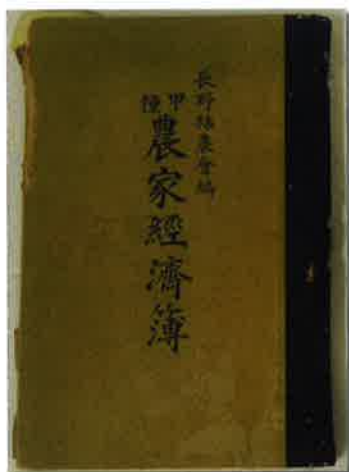 長野縣農會編
甲種
農家經濟簿